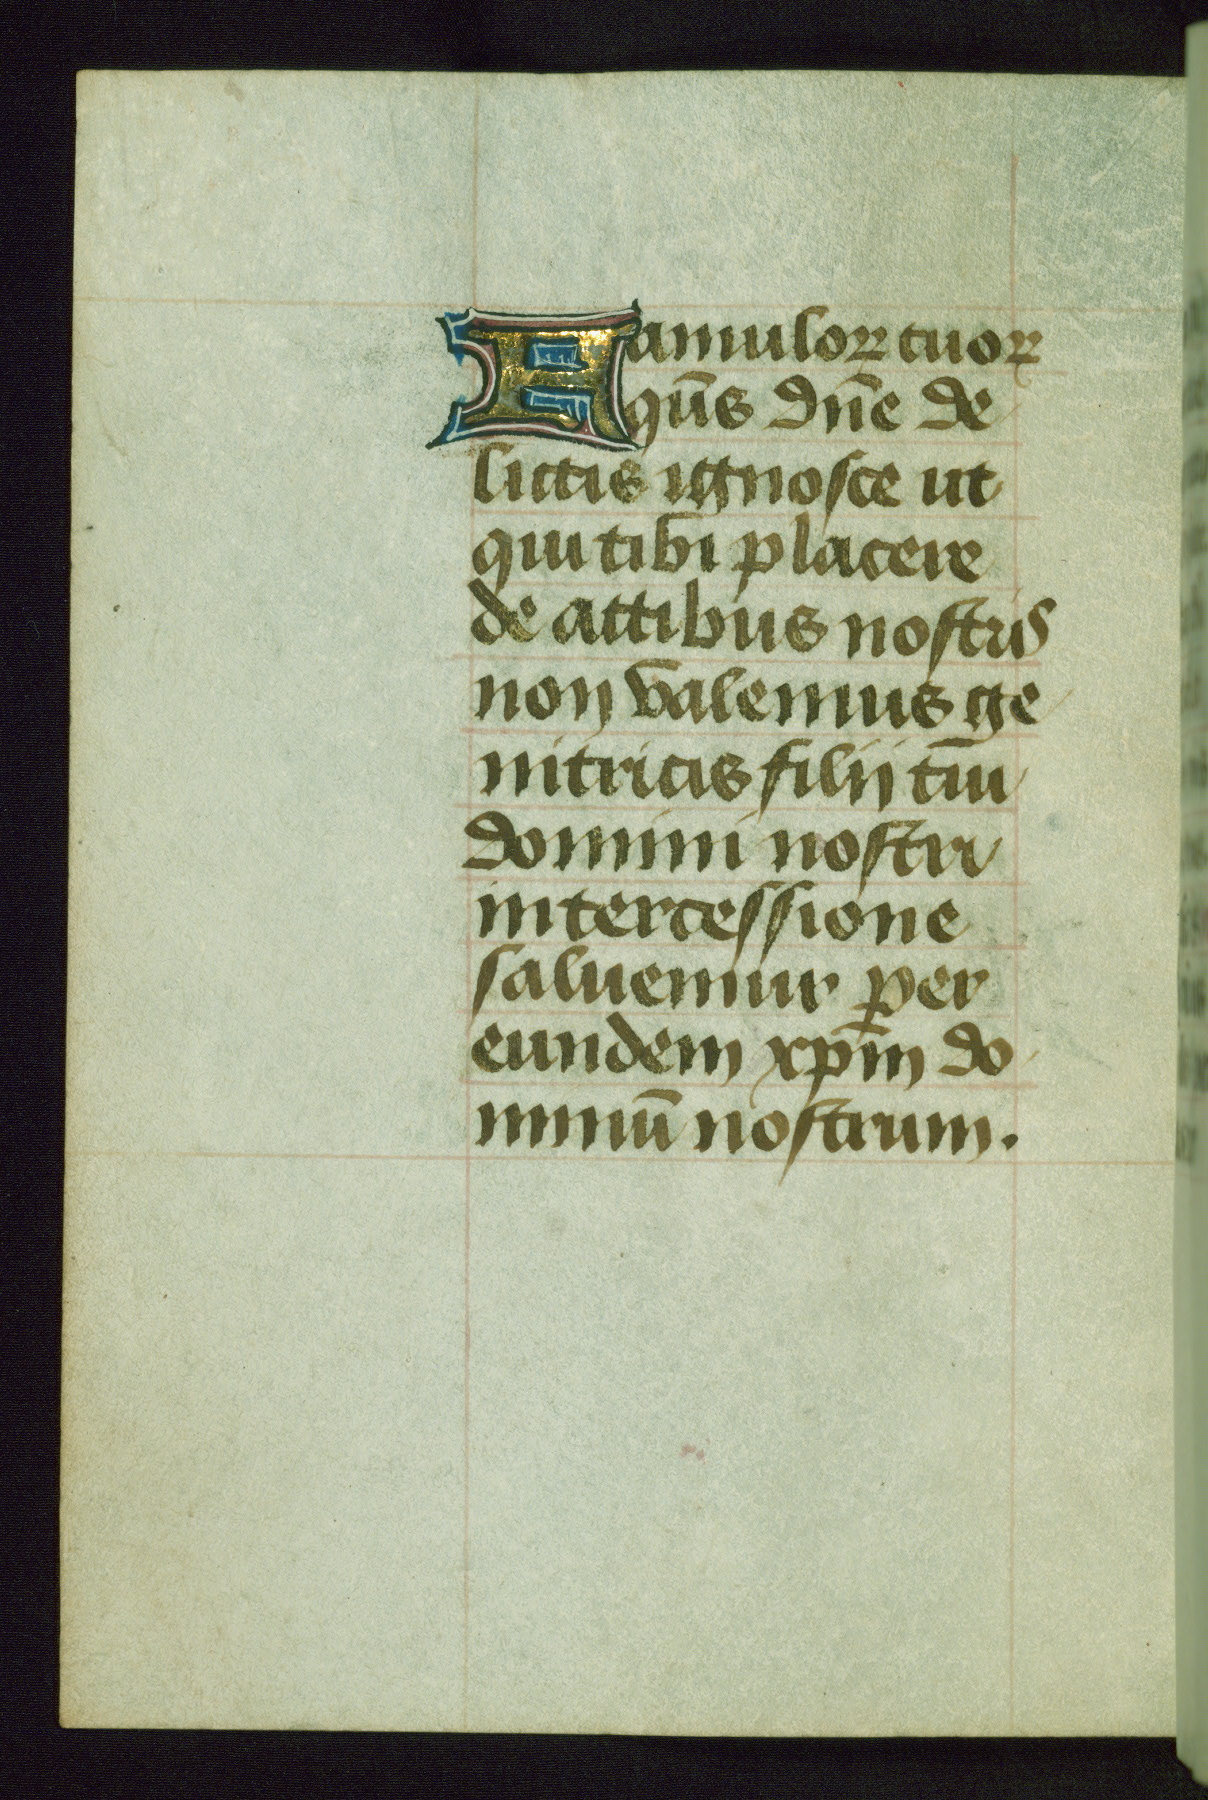 Famuloꝝ tuoꝝ
qūs dn̄e de
lictis ignosce ut
qui tibi placere
de actibus nostris
non valemus ge
nitricis filij tui
domini nostri
intercessione
saluemur per
eundem xp̄m do
minū nostrum.